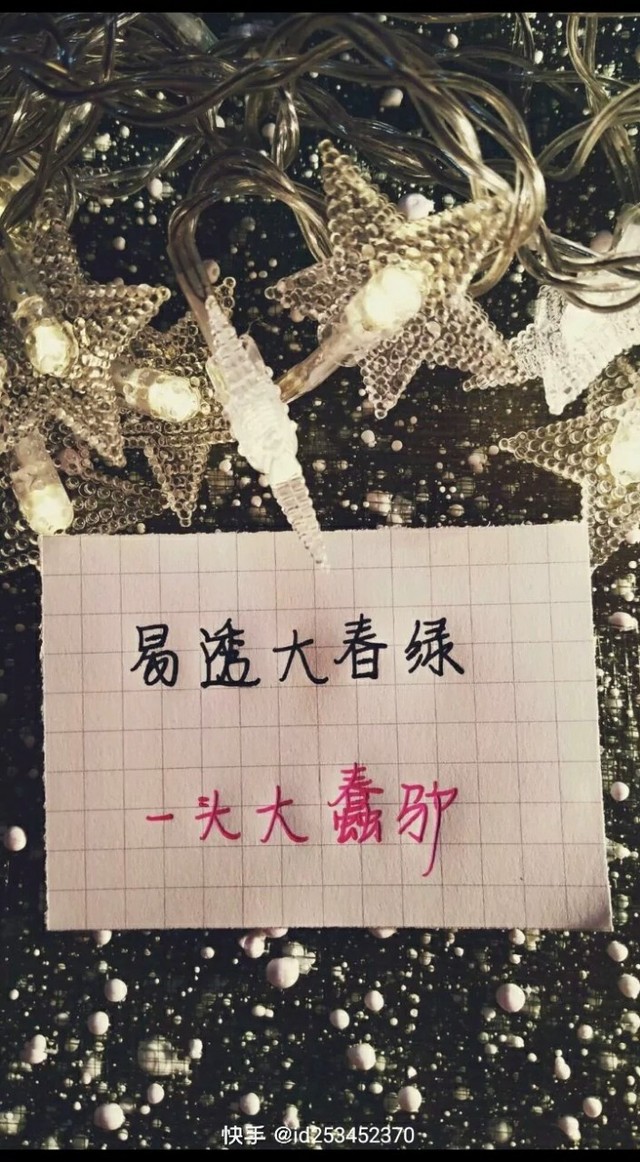 易透大春绿
一头大蠢驴
快手 @id253452370